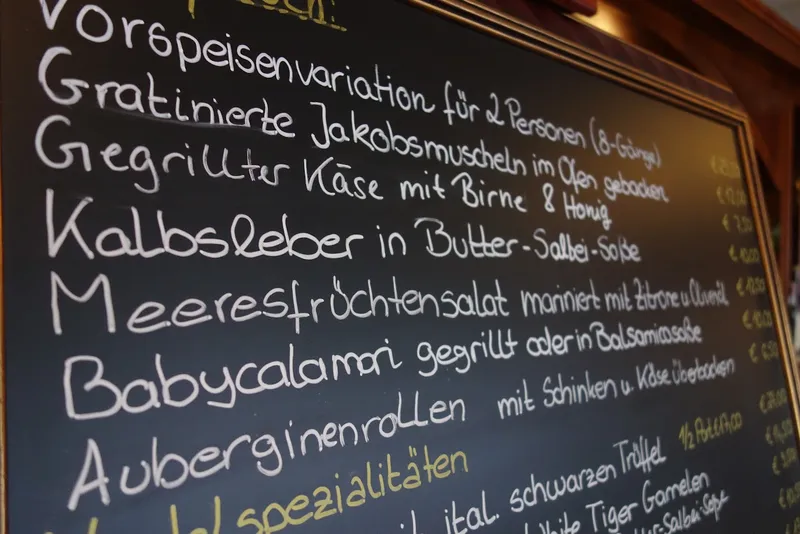 Vorspeisenvariation für 2 Personen (8-Gänge)
Gratinierte Jakobsmuscheln im Ofen gebacken
Gegrillter Käse mit Birne & Honig € 7,50
Kalbsleber in Butter-Salbei-Soße € 10,00
Meeresfrüchtensalat mariniert mit Zitrone u. Olivenöl € 12,50
Babycalamari gegrillt oder in Balsamicosoße € 10,00
Auberginenrollen mit Schinken u. Käse überbacken € 6,50
spezialitäten
ital. schwarzen Trüffel 1/2 Port.
White Tiger Garnelen
Butter-Salbei-Soße